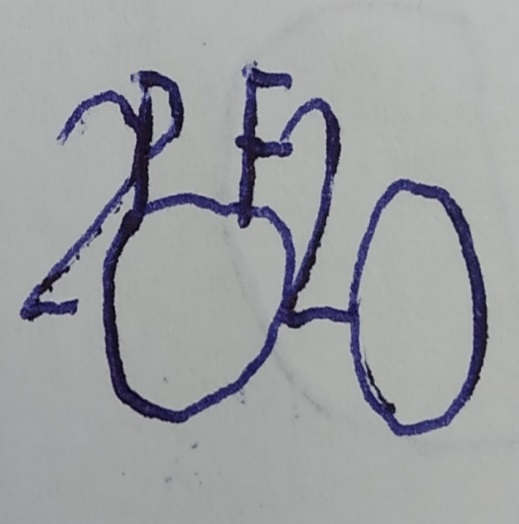 2020
PF